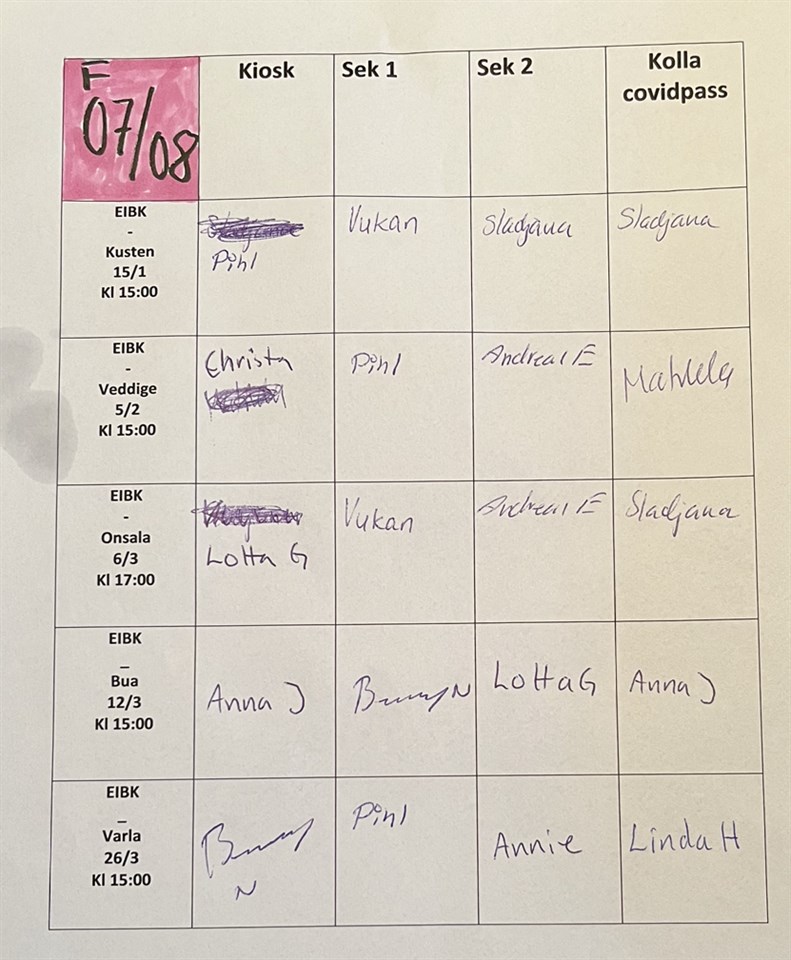 F
07/08
Kiosk
Sek 1
Sek 2
Kolla
covidpass
EIBK
-
Kusten
15/1
Kl 15:00
Pihl
Vukan
Sladjana
Sladjana
EIBK
-
Veddige
5/2
Kl 15:00
Christa
Pihl
Andreas E
EIBK
-
Onsala
6/3
Kl 17:00
Lotta G
Vukan
Andreas E
Sladjana
EIBK
_
Bua
12/3
Kl 15:00
Anna J
N
Lotta G
Anna J
EIBK
_
Varla
26/3
Kl 15:00
N
Pihl
Annie
Linda H